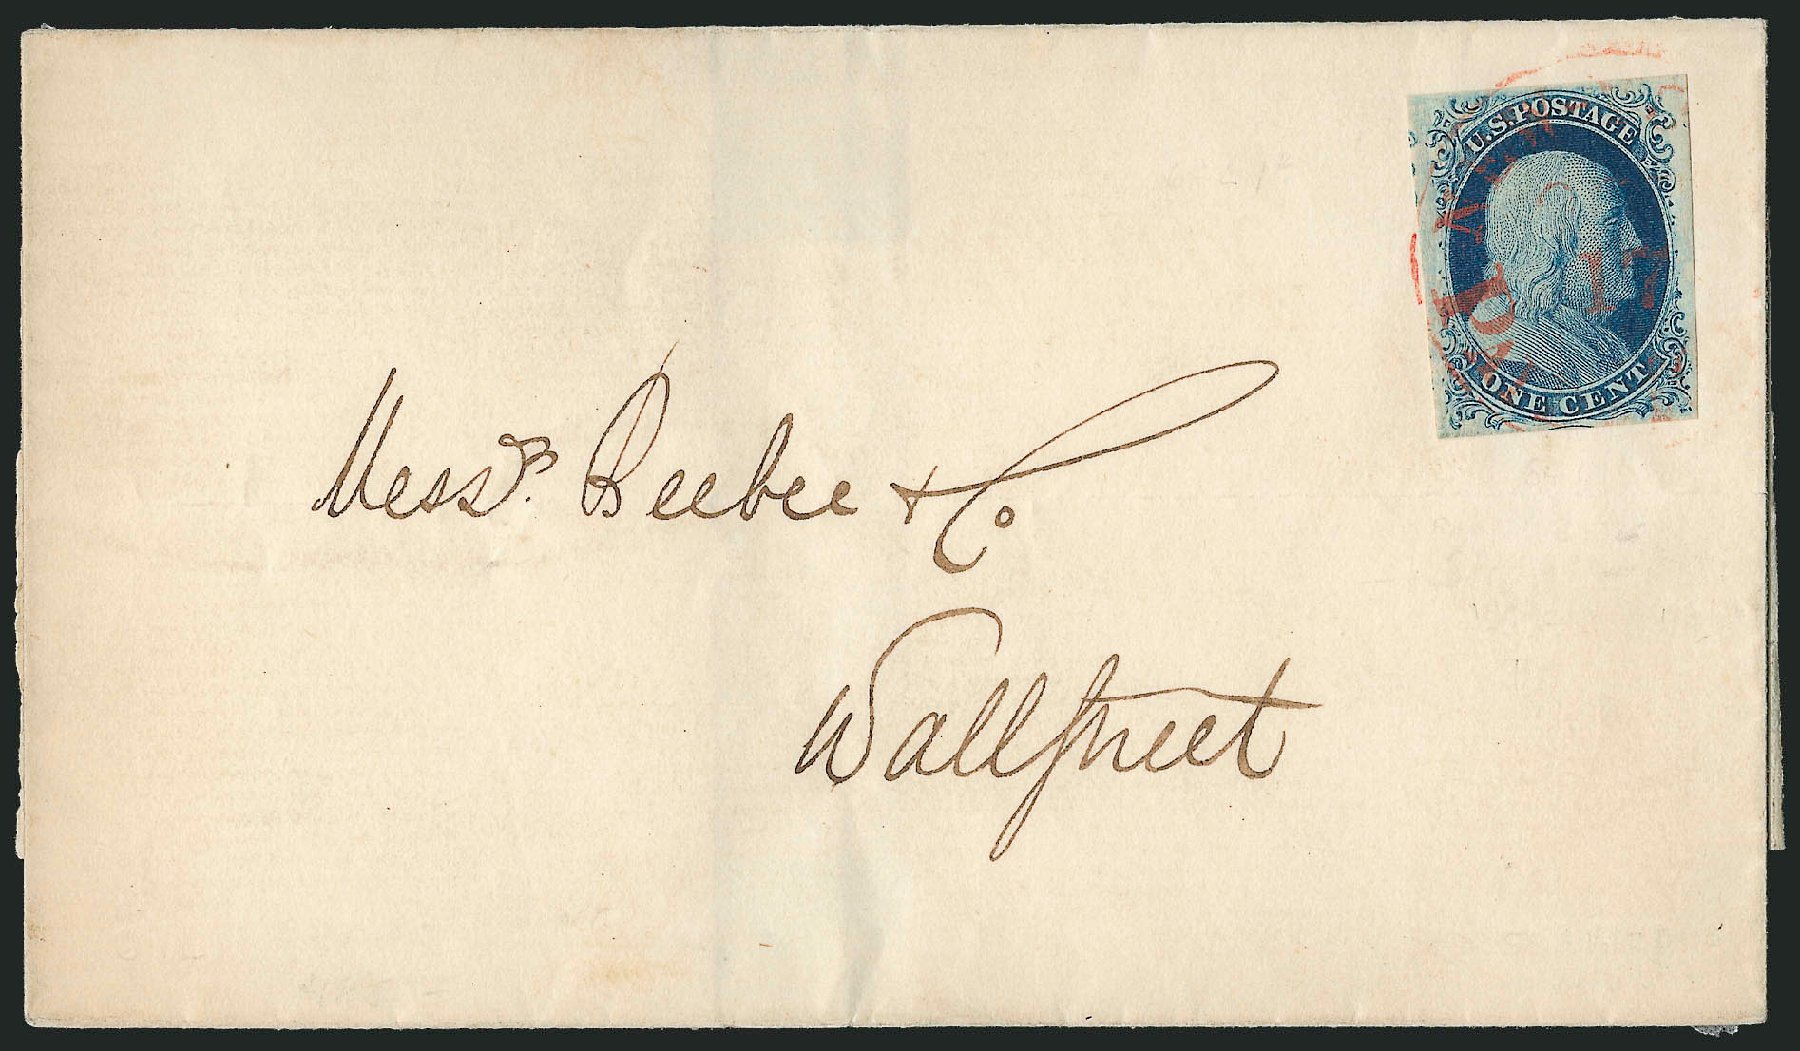 U.S. POSTAGE
ONE CENT
Messrs. Beebee & Co
Wall Street